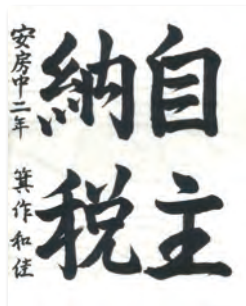 自主
納税
安房中二年 箕作和佳